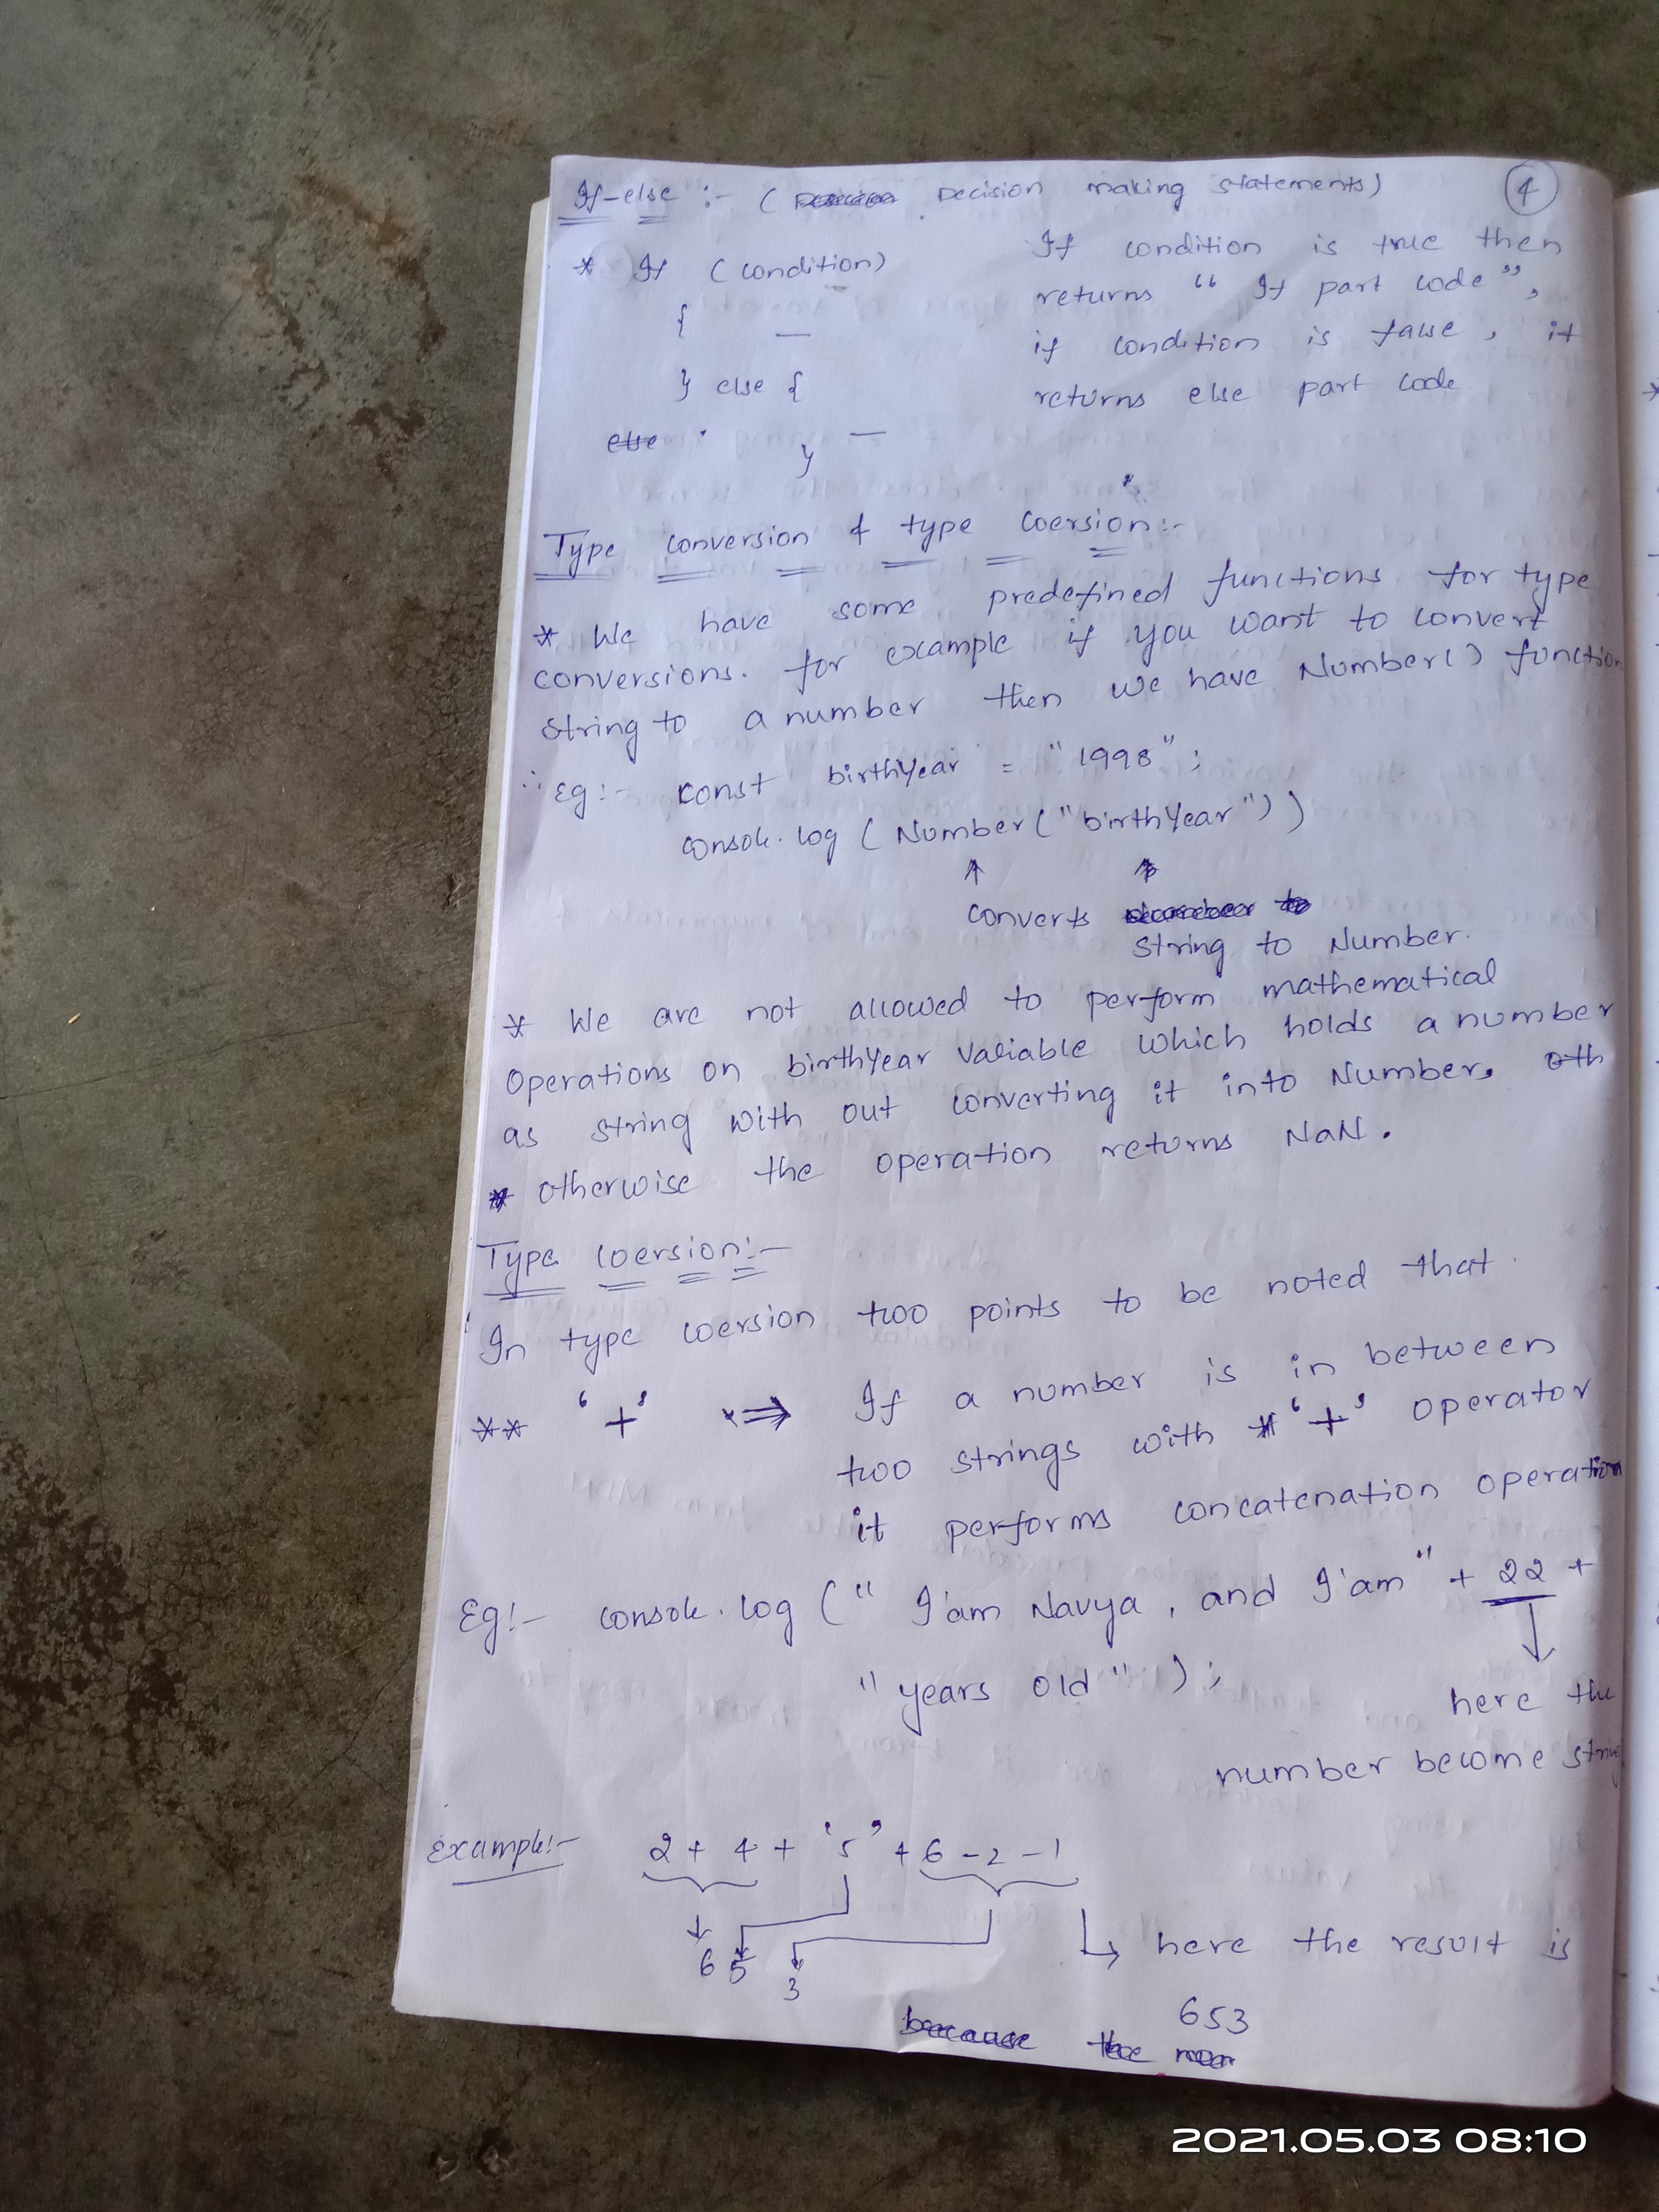 If-else :- ( Decision making statements)
4
* If (condition)
{ —
} else {
else —
}
If condition is true then
returns “ If part code”,
if condition is false, it
returns else part code
Type conversion & type coersion:-
* We have some predefined functions for type
conversions. for example if you want to convert
string to a number then we have Number() function
∴ Eg:- const birthYear = "1998";
console.log (Number("birthYear"))
↑ ↑
converts
string to Number.
* We are not allowed to perform mathematical
operations on birthYear variable which holds a number
as string with out converting it into Number, oth
* otherwise the operation returns NaN.
Type coersion:-
In type coersion two points to be noted that
** ‘+’ ⇒ If a number is in between
two strings with ‘+’ operator
it performs concatenation operation
Eg:- console.log (" I'am Navya, and I'am" + 22 +
"years old" );
↓
here the
number become string
Example:- 2 + 4 + ‘5’ + 6 - 2 - 1
6 5 3
↳ here the result is
653
because the
2021.05.03 08:10